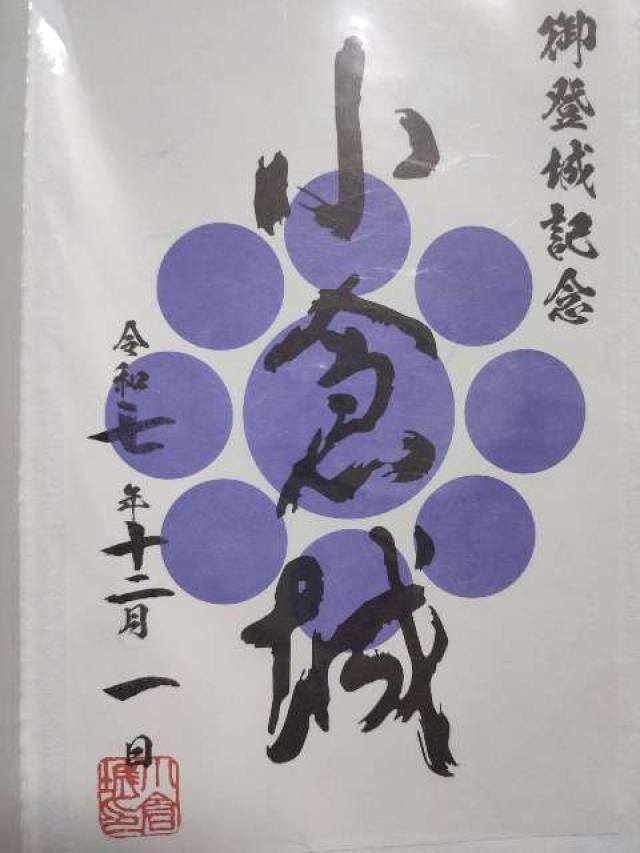 御登城記念
小倉城
令和七年十二月一日
小倉城印